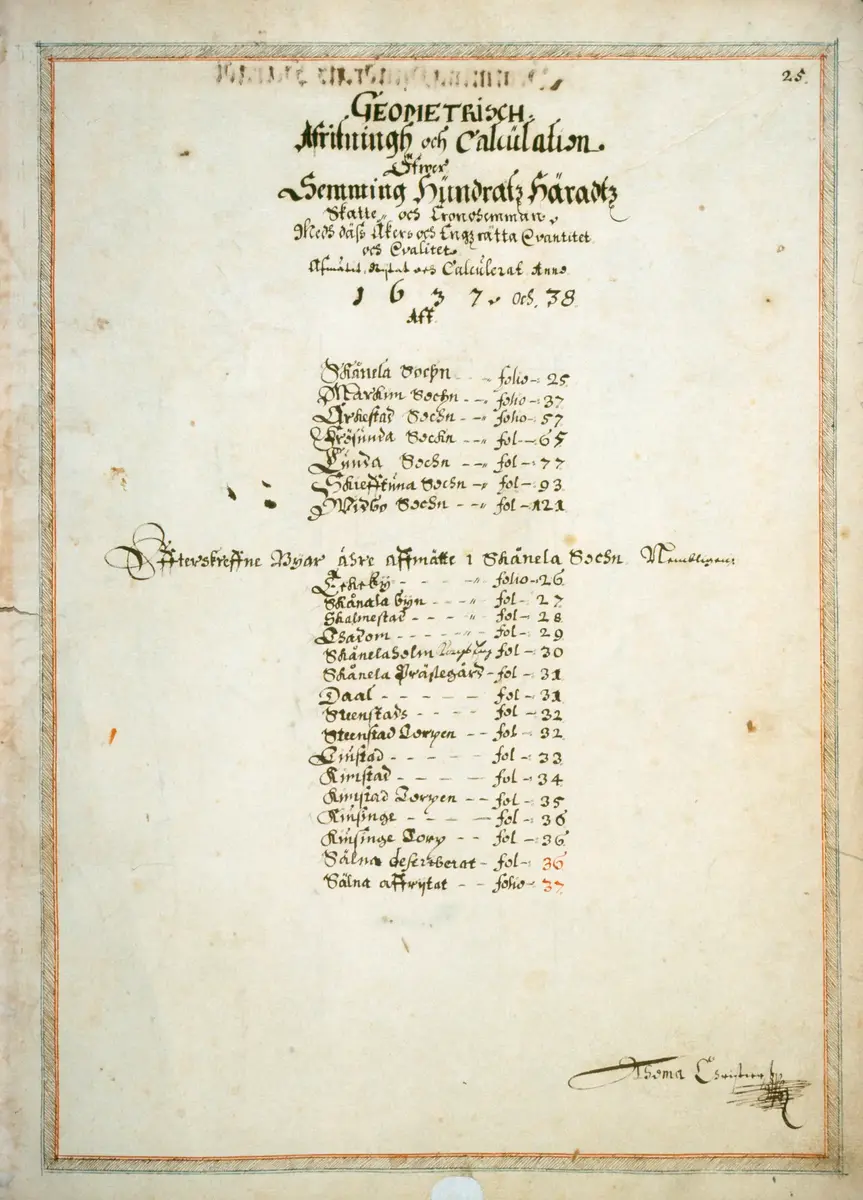 25.
GEOMETRISCH
Affritningh och Calculation.
Öfwer
Semming Hündratz Häradtz
Skatte och Cronohemman
Medh däss Åkers och Engz rätta Qvantitet
och Qvalitet
Afmätit, och Calculerat Anno
1637 och 38
Aff
Skånela Sochn folio 25
Markim Sochn folio 37
Orkestad Sochn folio 57
Frösunda Sochn fol 65
Lunda Sochn fol 77
Skiefftuna Sochn fol 93
Widbo Sochn fol 121
Effterskreffne Byar ähre affmätte i Skånela Sochn Nembligen
Ekeby folio 26
Skånala byn fol 27
Skalmestad fol 28
fol 29
Skånelaholm fol 30
Skånela Prästegård fol 31
Daal fol 31
Steenstads fol 32
Steenstad Torpen fol 32
fol 33
Kimstad fol 34
Kimstad Torpen fol 35
Kinsinge fol 36
Kinsinge Torp fol 36
Sälna describerat fol 36
Sälna affrytat folio 37
Thoma Christiern